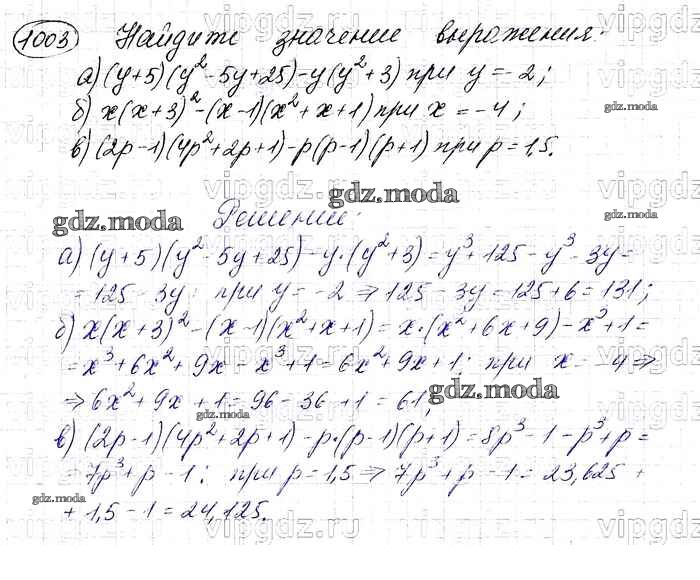 1003 Найдите значение выражения:
а) (y+5)(y²-5y+25)-y(y²+3) при y=-2;
б) x(x+3)²-(x-1)(x²+x+1) при x=-4;
в) (2p-1)(4p²+2p+1)-p(p-1)(p+1) при p=1,5.
Решение:
а) (y+5)(y²-5y+25)-y·(y²+3)=y³+125-y³-3y=
=125-3y; при y=-2 ⇒ 125-3y=125+6=131;
б) x(x+3)²-(x-1)(x²+x+1)=x·(x²+6x+9)-x³+1=
=x³+6x²+9x-x³+1=6x²+9x+1; при x=-4 ⇒
⇒ 6x²+9x+1=96-36+1=61;
в) (2p-1)(4p²+2p+1)-p·(p-1)(p+1)=8p³-1-p³+p=
=7p³+p-1; при p=1,5 ⇒ 7p³+p-1=23,625+
+1,5-1=24,125.
gdz.moda
gdz.moda
gdz.moda
gdz.moda
gdz.moda
gdz.moda
gdz.moda
vipgdz.ru